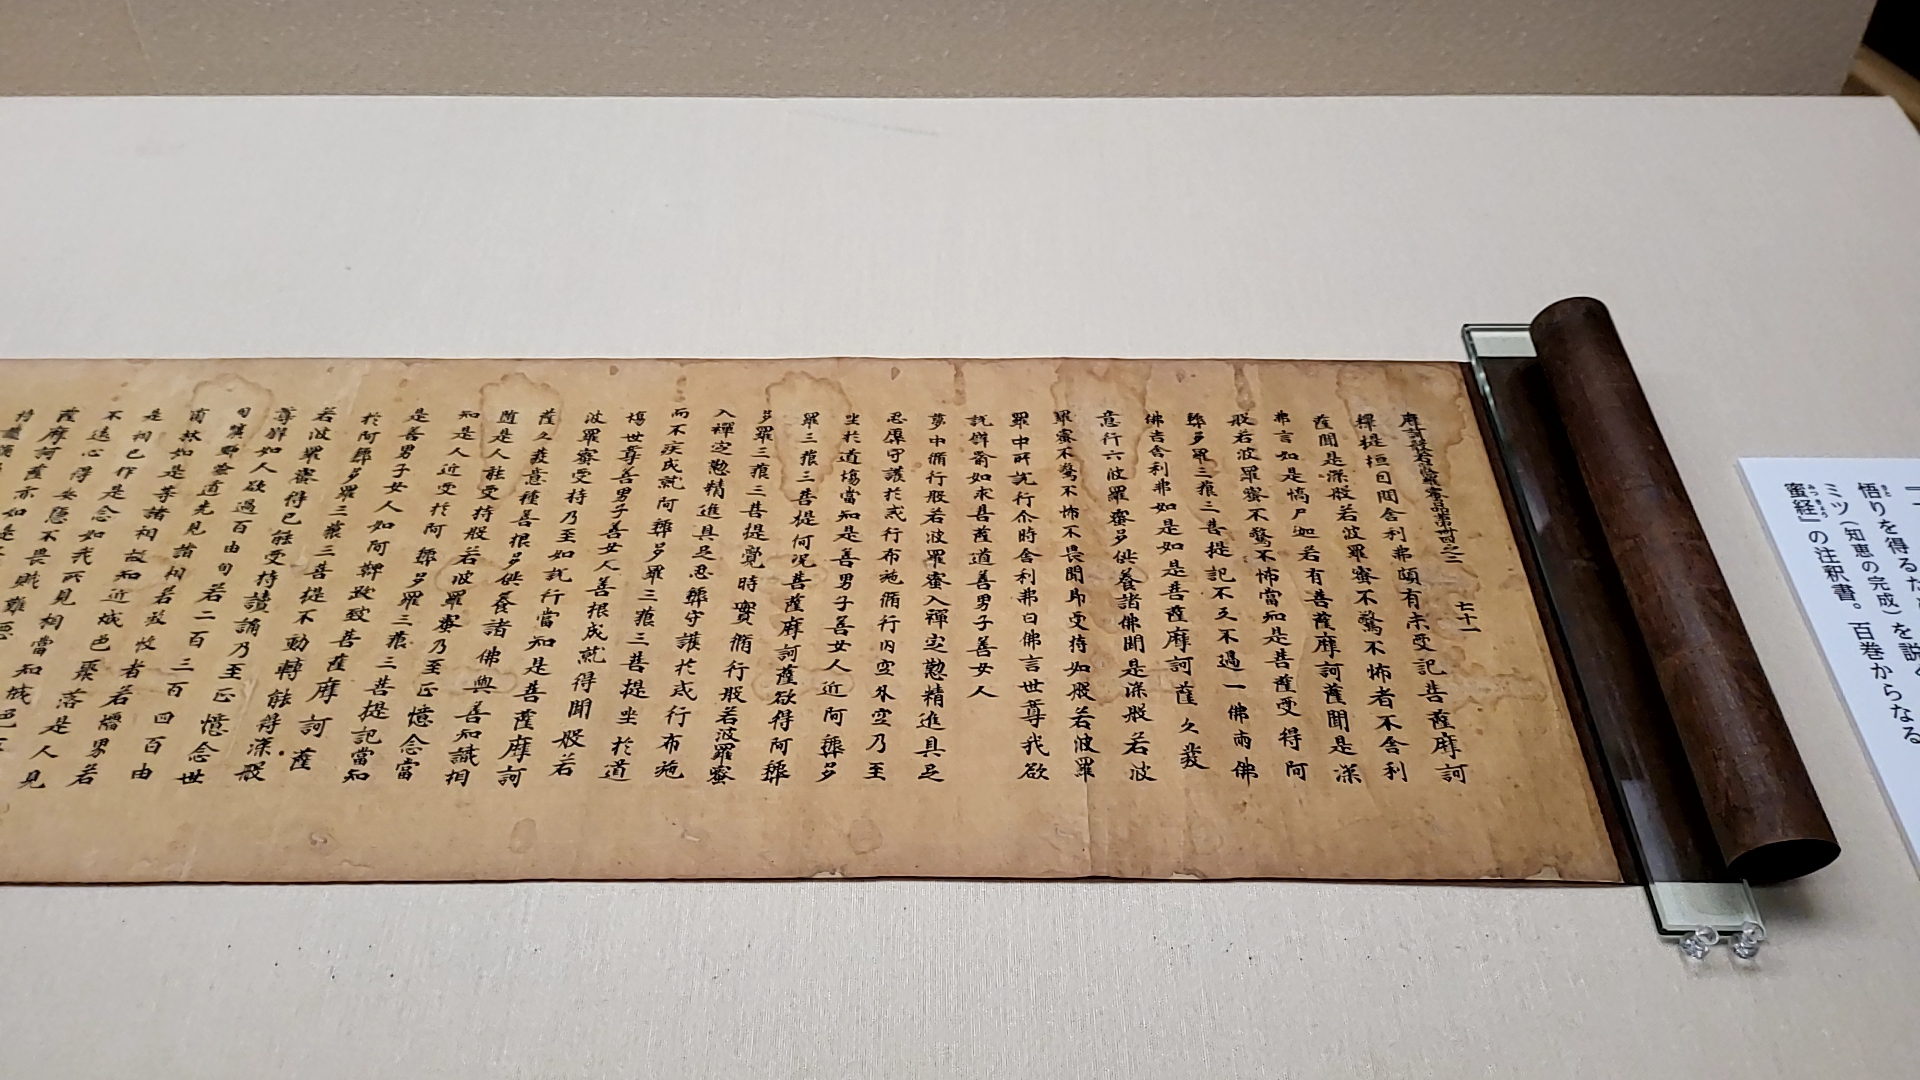 摩訶般若波羅蜜品第卌四之二　七十一
釋提桓因問舍利弗頗有未受記菩薩摩訶
薩聞是深般若波羅蜜不驚不怖者不舍利
弗言如是憍尸迦若有菩薩摩訶薩聞是深
般若波羅蜜不驚不怖當知是菩薩受得阿
耨多羅三藐三菩提記不久不過一佛兩佛
佛告舍利弗如是如是菩薩摩訶薩久發
意行六波羅蜜多供養諸佛聞是深般若波
羅蜜不驚不怖不畏聞即受持如般若波羅
蜜中所說行尒時舍利弗白佛言世尊我欲
說譬喻如求菩薩道善男子善女人
夢中脩行般若波羅蜜入禪定懃精進具足
忍辱守護於戒行布施脩行内空外空乃至
坐於道場當知是善男子善女人近阿耨多
羅三藐三菩提何況菩薩摩訶薩欲得阿耨
多羅三藐三菩提覺時實脩行般若波羅蜜
入禪定懃精進具足忍辱守護於戒行布施
而不疾成就阿耨多羅三藐三菩提坐於道
場世尊善男子善女人善根成就得聞般若
波羅蜜受持乃至如說行當知是菩薩摩訶
薩久發意種善根多供養諸佛與善知識相
隨是人能受持般若波羅蜜乃至正憶念當
知是人近受於阿耨多羅三藐三菩提記當知
是善男子女人如阿鞞跋致菩薩摩訶薩
於阿耨多羅三藐三菩提不動轉能得深般
若波羅蜜得已能受持讀誦乃至正憶念世
尊譬如人欲過百由旬若二百三百四百由
旬曠野嶮道先見諸相若放牧者若壃界若
園林如是等諸相故知近城邑聚落是人見
是相已作是念如我所見相當知城邑
不遠心得安隱不畏賊難惡
薩摩訶薩亦如是
悟りを得るた
ミツ（知恵の完成）を説く
蜜経』の注釈書。百巻からなる